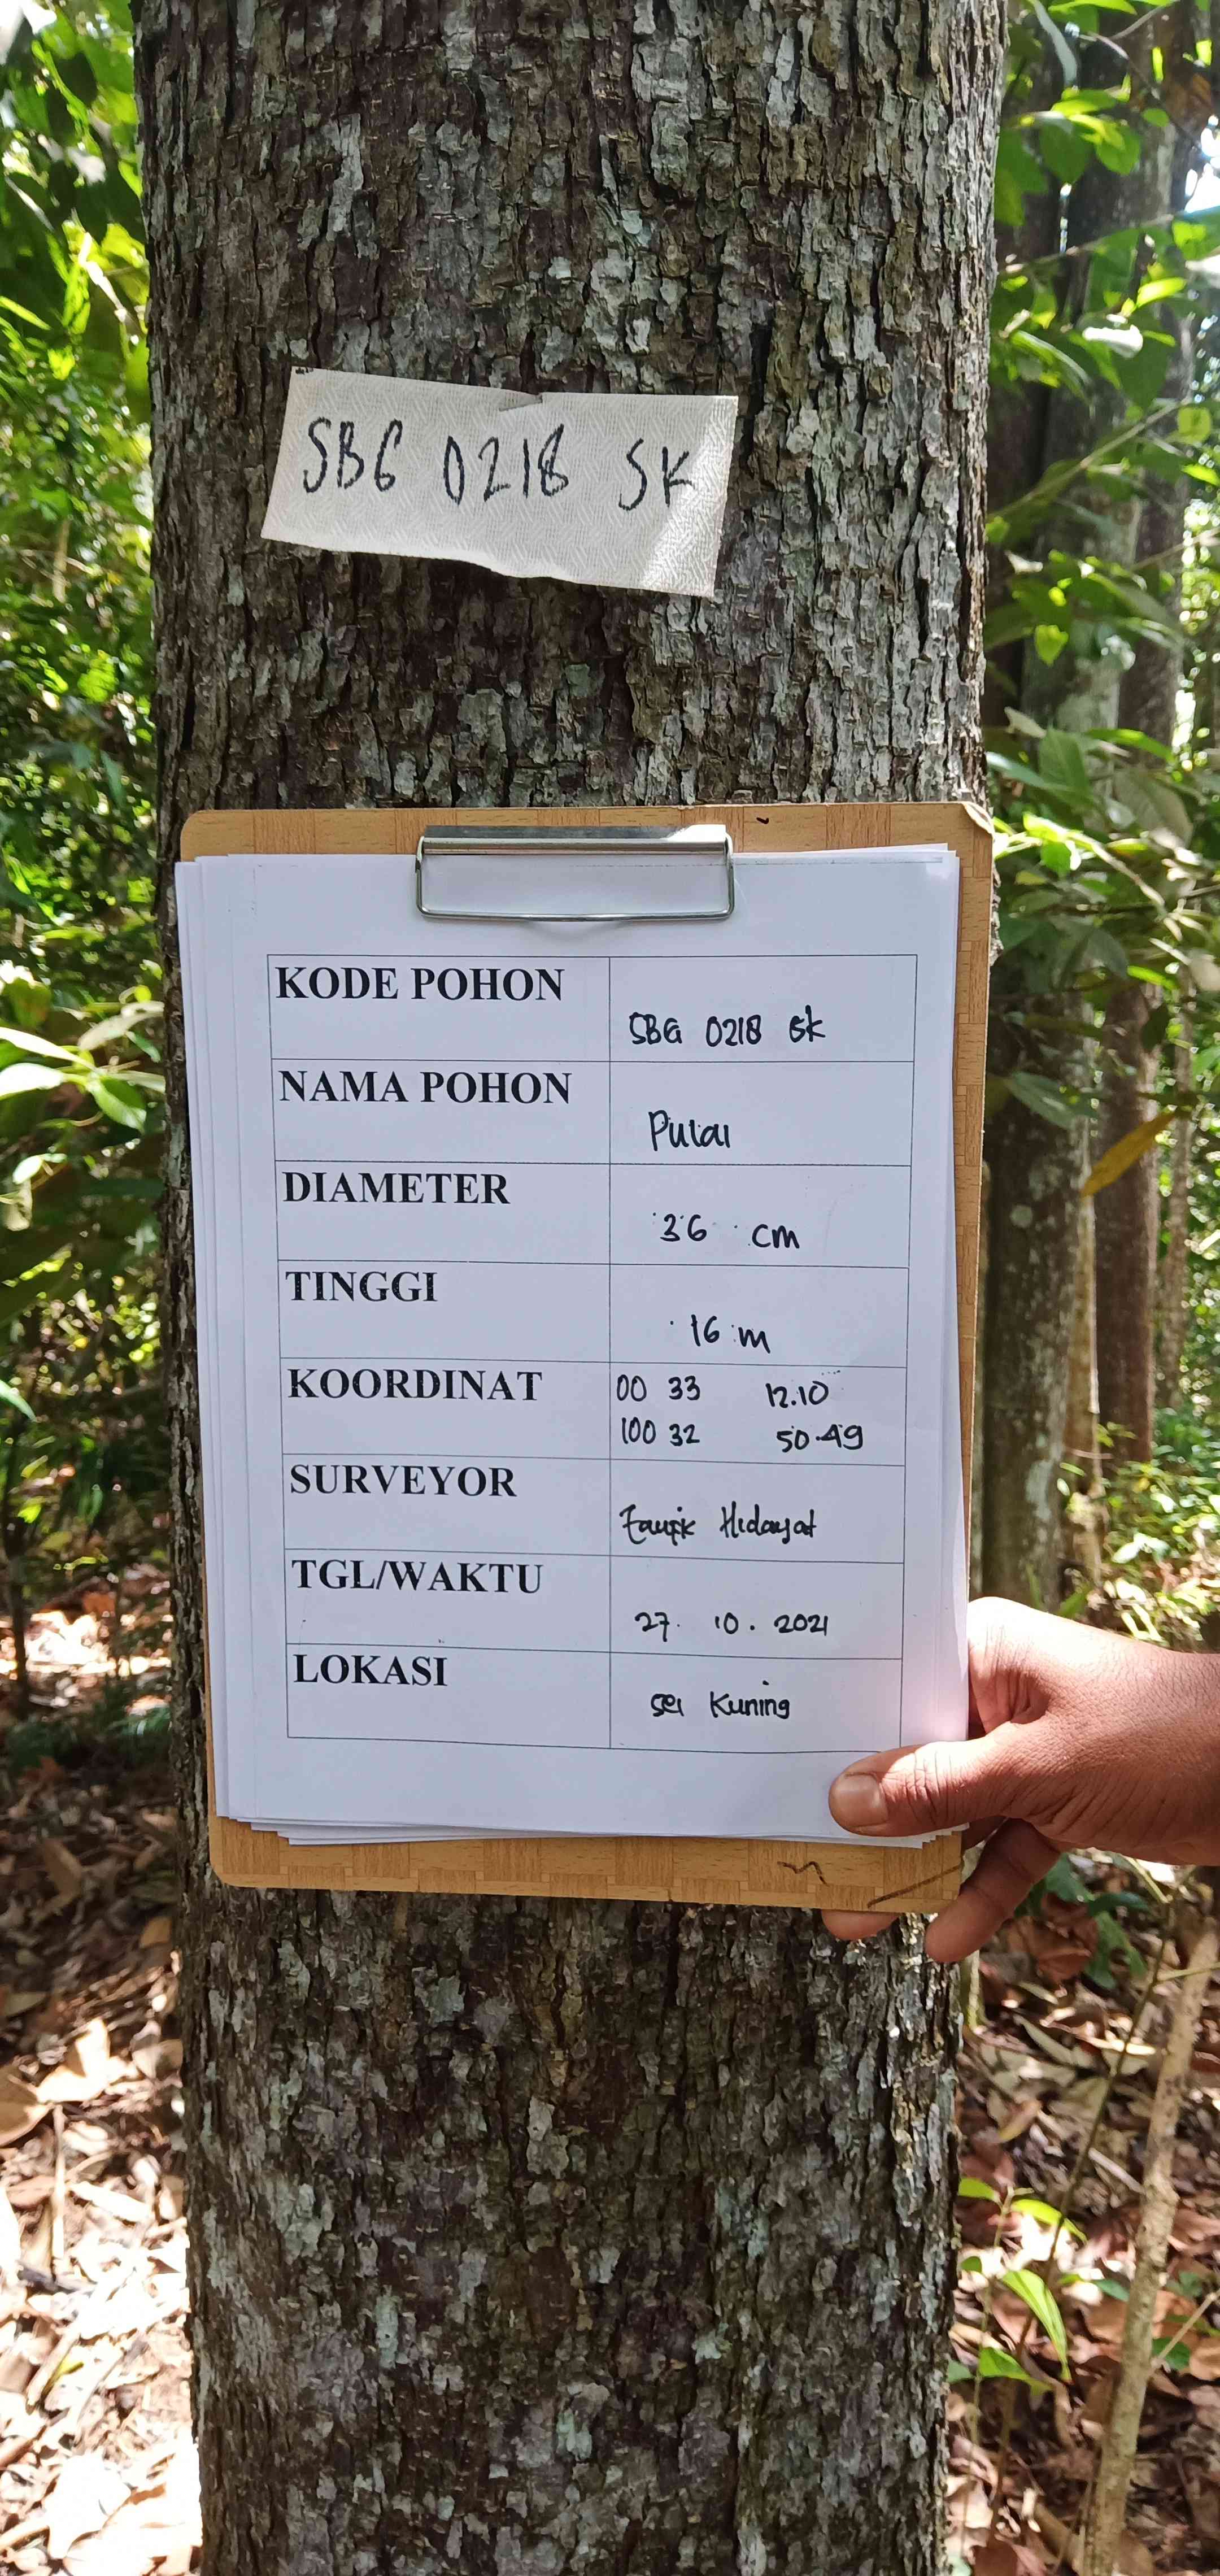 SBG 0218 SK
KODE POHON
SBG 0218 SK
NAMA POHON
Pulai
DIAMETER
36 cm
TINGGI
16 m
KOORDINAT
00 33 12.10
100 32 50.49
SURVEYOR
Taufik Hidayat
TGL/WAKTU
27. 10. 2021
LOKASI
Sei Kuning